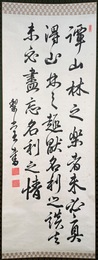 譚山林之樂者未必真
得山林之趣厭名利之談者
未必盡忘名利之情